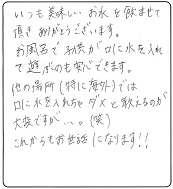 いつも美味しいお水を飲ませて
頂きありがとうございます。
お風呂で子供が口に水を入れ
て遊ぶのも安心できます。
他の場所(特に海外)では
口に水を入れちゃダメと教えるのが
大変ですが、、。(笑)
これからもお世話になります!!